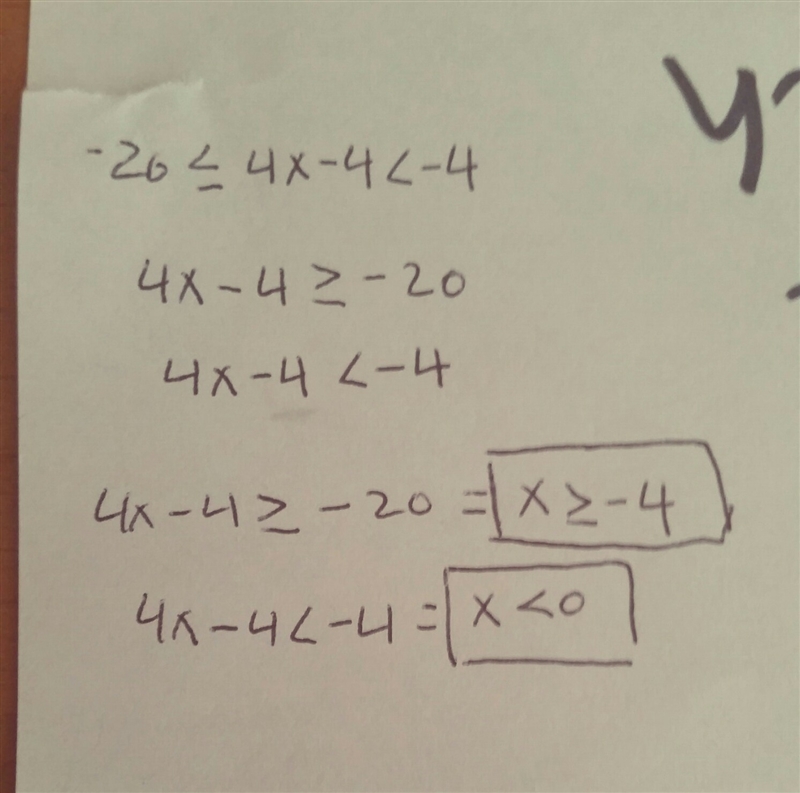 -20 ≤ 4x-4 < -4
4x-4 ≥ -20
4x-4 < -4
4x-4 ≥ -20 = x ≥ -4
4x-4 < -4 = x < 0
y